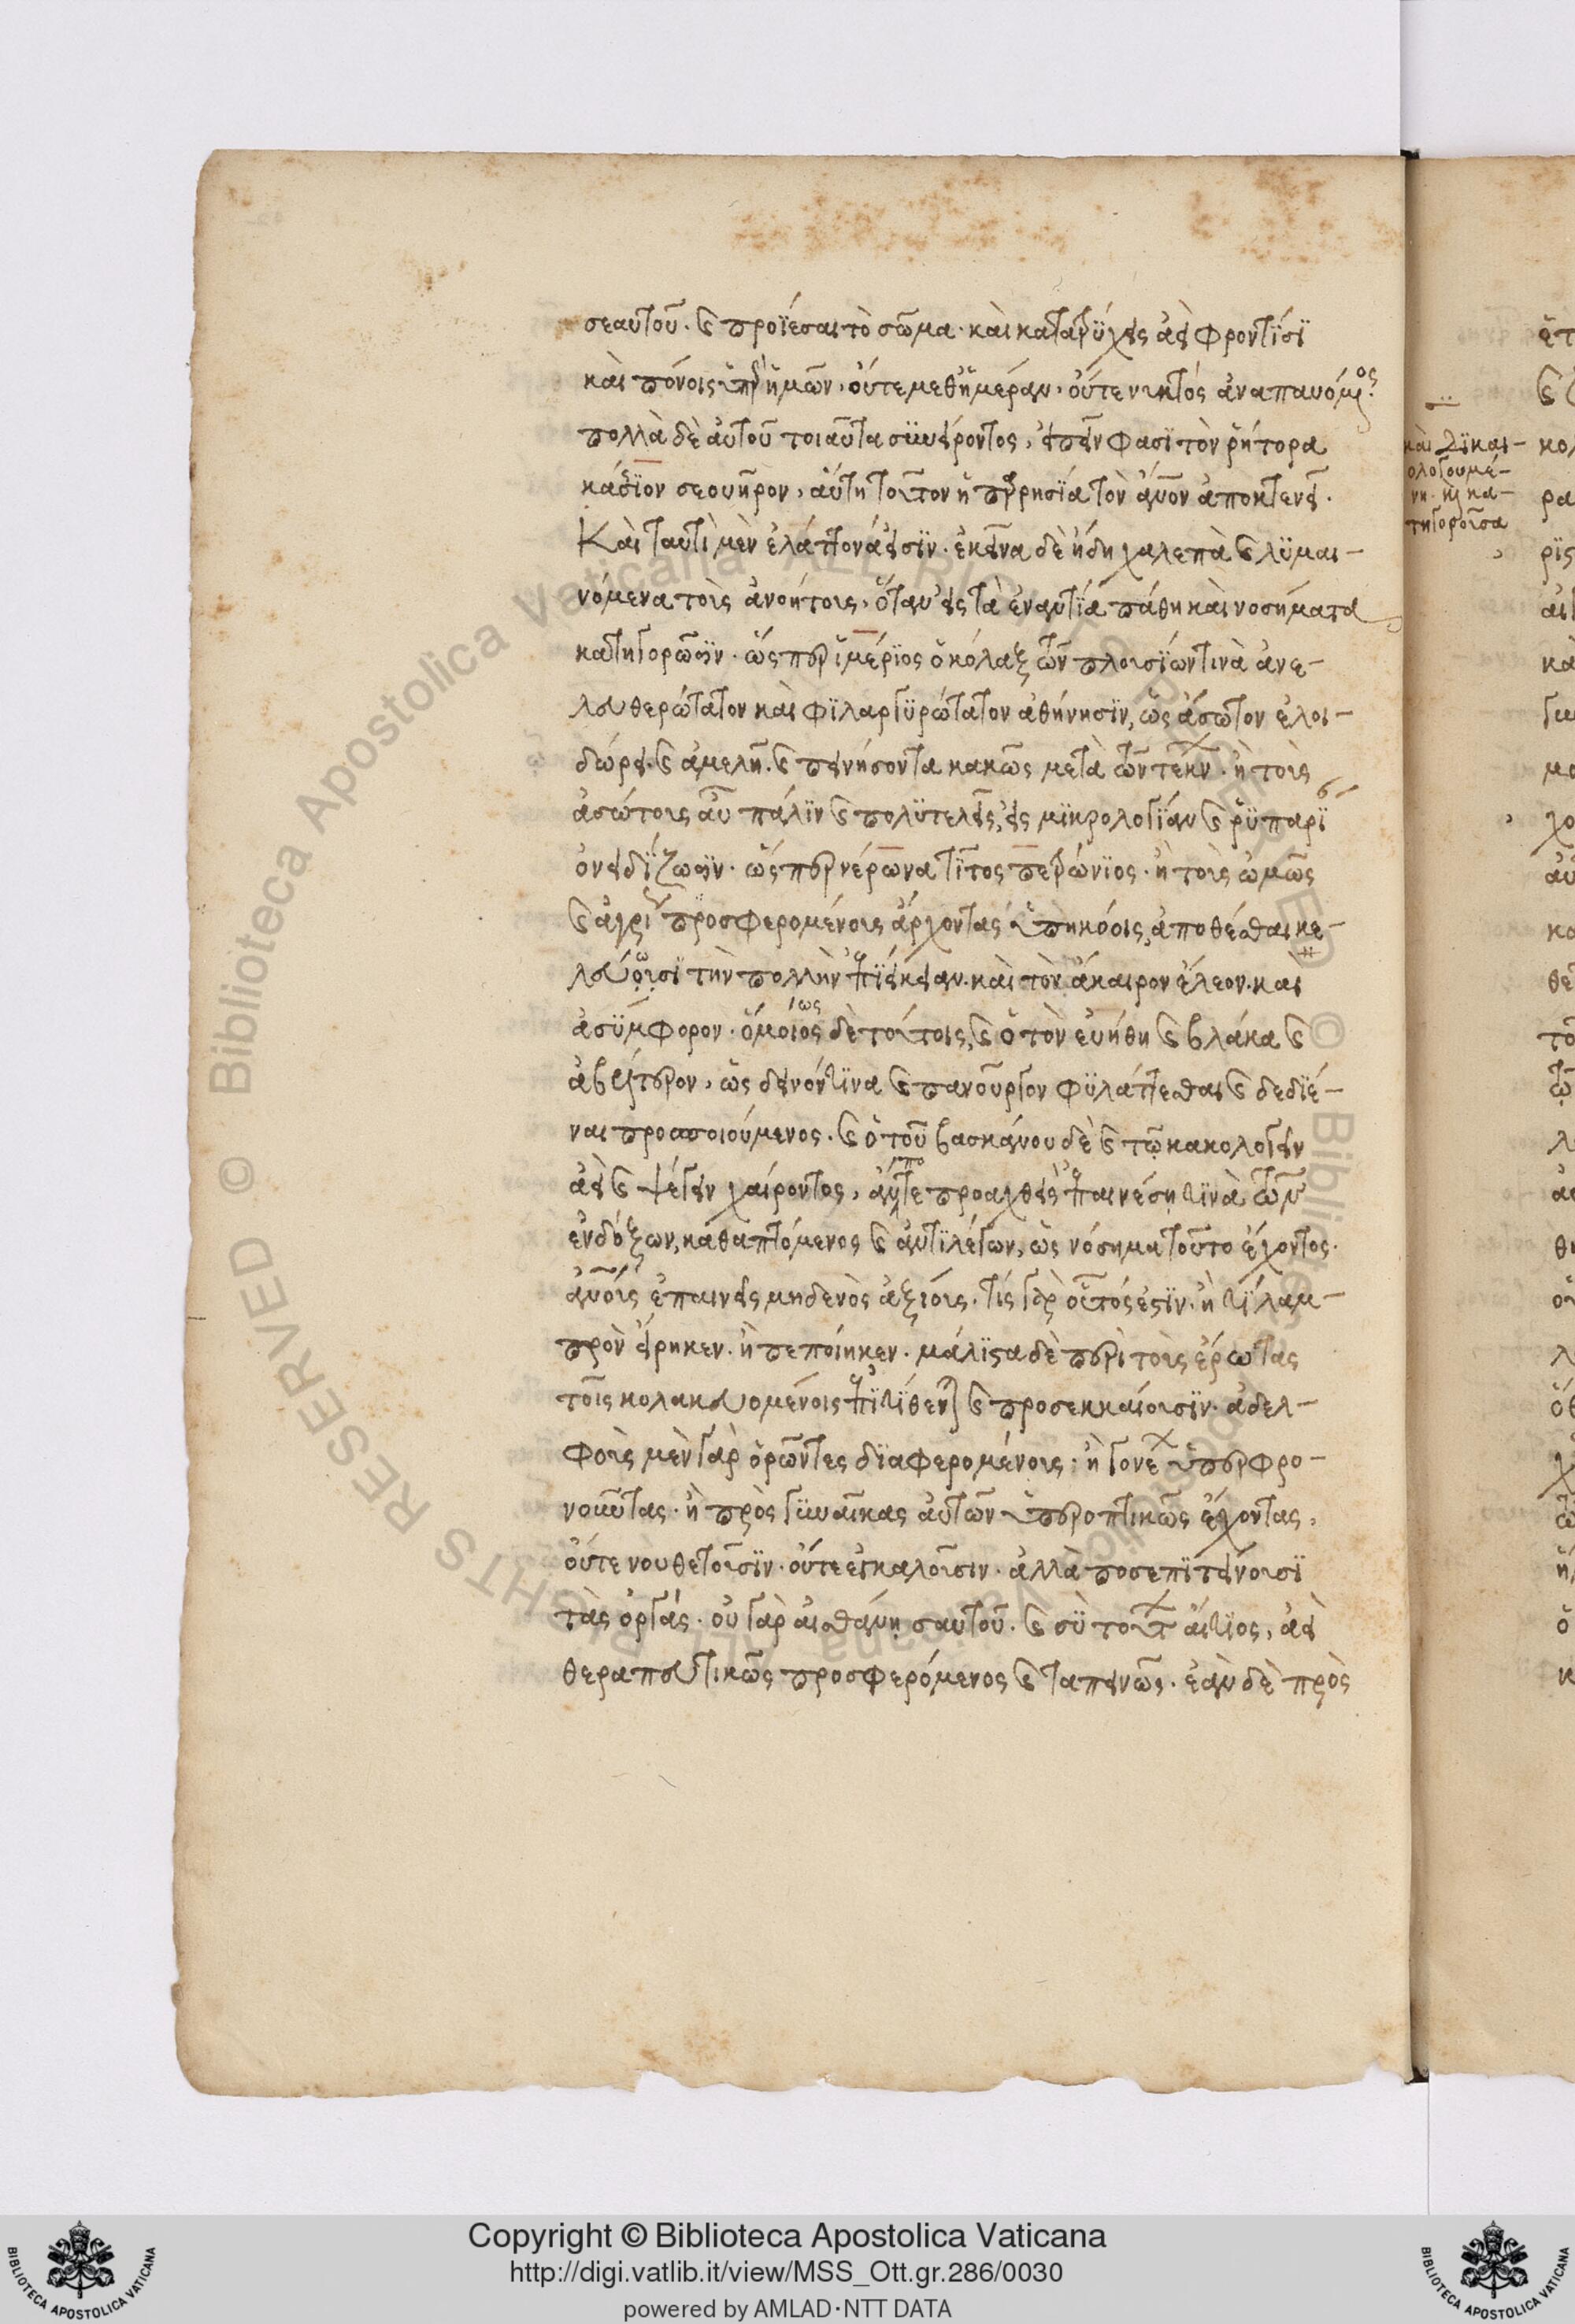 σεαυτοῦ. καὶ προΐεσαι τὸ σῶμα. καὶ κατατρύχεις ἀεὶ φροντίσι
καὶ πόνοις ὑπὲρ ἡμῶν, οὔτε μεθ' ἡμέραν, οὔτε νυκτός ἀναπαυόμενος.
πολλὰ δὲ αὐτοῦ τοιαῦτα συνείροντος, εἰπεῖν φασὶ τὸν ῥήτορα
κάσιον σεουῆρον, αὕτη τοῦτον ἡ παρρησία τὸν ἄνον ἀποκτενεῖ.
Καὶ ταυτὶ μὲν ἐλάττονά εἰσιν. ἐκεῖνα δὲ ἤδη χαλεπὰ καὶ λυμαι-
νόμενα τοὺς ἀνοήτους, ὅταν εἰς τὰ ἐναντία πάθη καὶ νοσήματα
κατηγορῶσιν. ὥσπερ ἱμέριος ὁ κόλαξ τῶν πλουσίων τινὰ ἀνε-
λευθερώτατον καὶ φιλαργυρώτατον ἀθήνησιν, ὡς ἄσωτον ἐλοι-
δώρει. καὶ ἀμελῆ. καὶ πεινήσοντα κακῶς μετὰ τῶν τέκνων. ἢ τοὺς
ἀσώτους αὖ πάλιν καὶ πολυτελεῖς, εἰς μικρολογίαν καὶ ῥυπαρί
ὀνειδίζωσιν. ὥσπερ νέρωνα τῖτος πετρώνιος. ἢ τοὺς ὠμῶς
καὶ ἀγρίως προσφερομένους ἄρχοντας ὑπηκόοις, ἀποθέσθαι κε-
λεύουσι τὴν πολλὴν ἐπιείκειαν. καὶ τὸν ἄκαιρον ἔλεον. καὶ
ἀσύμφορον. ὅμοιος δὲ τούτοις, καὶ ὁ τὸν εὐήθη καὶ βλάκα καὶ
ἀβέλτερον, ὡς δεινόν τινα καὶ πανοῦργον φυλάττεσθαι καὶ δεδιέ-
ναι προσποιούμενος. καὶ ὁ τοῦ βασκάνου δὲ καὶ τῷ κακολογεῖν
ἀεὶ καὶ ψέγειν χαίροντος, ἄν ποτε προαχθεὶς ἐπαινέσῃ τινὰ τῶν
ἐνδόξων, καθαπτόμενος καὶ ἀντιλέγων, ὡς νόσημα τοῦτο ἔχοντος.
ἀνους ἐπαινεῖς μηδενὸς ἀξίους. τίς γὰρ οὗτός ἐστιν. ἢ τί λαμ-
πρὸν εἴρηκεν. ἢ πεποίηκεν. μάλιστα δὲ περὶ τοὺς ἔρωτας
τοῖς κολακευομένοις ἐπιτίθενται καὶ προσεκκαίουσιν. ἀδελ-
φοὺς μὲν γὰρ ὁρῶντες διαφερομένους. ἢ γονέων ὑπερφρο-
νοῦντας. ἢ πρὸς γυναῖκας αὐτῶν ὑπεροπτικῶς ἔχοντας,
οὔτε νουθετοῦσιν. οὔτε ἐγκαλοῦσιν. ἀλλὰ ποσεπιτείνουσι
τὰς ὀργάς. οὐ γὰρ αἰσθάνῃ σαυτοῦ. καὶ σὺ τούτων αἴτιος, ἀεὶ
θεραπευτικῶς προσφερόμενος καὶ ταπεινῶς. ἐὰν δὲ πρὸς
καὶ δικαι-
ολογουμέ-
νη. καὶ κα-
τηγοροῦσα